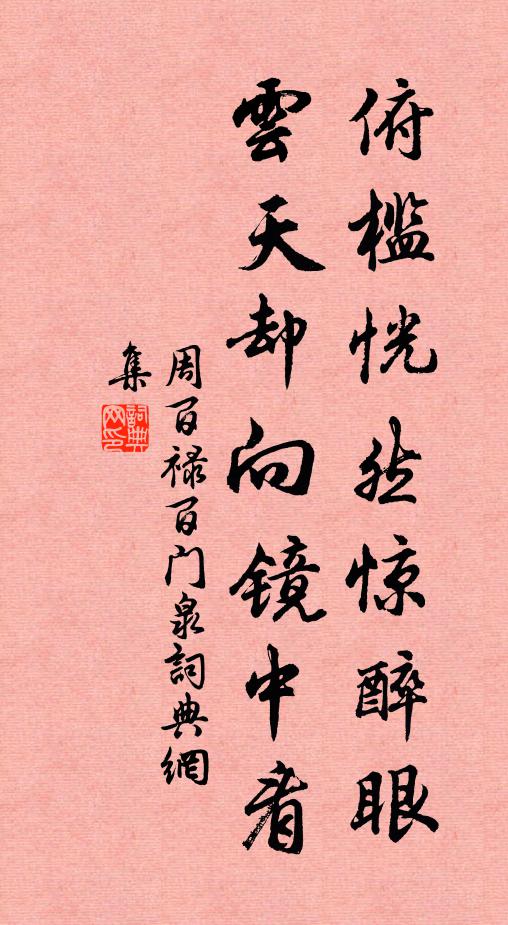 俯槛恍然惊醉眼
雲天却向镜中看
周百禄百门泉詞典網
集
詞典网印